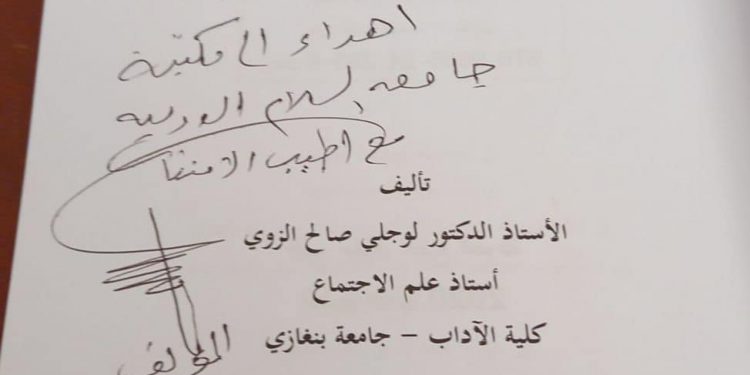 اهداء الى مكتبة
جامعه السلام الدوليه
مع اطيب الامنيات
تأليف
الأستاذ الدكتور لوجلي صالح الزوي
أستاذ علم الاجتماع
كلية الآداب – جامعة بنغازي
المؤلف